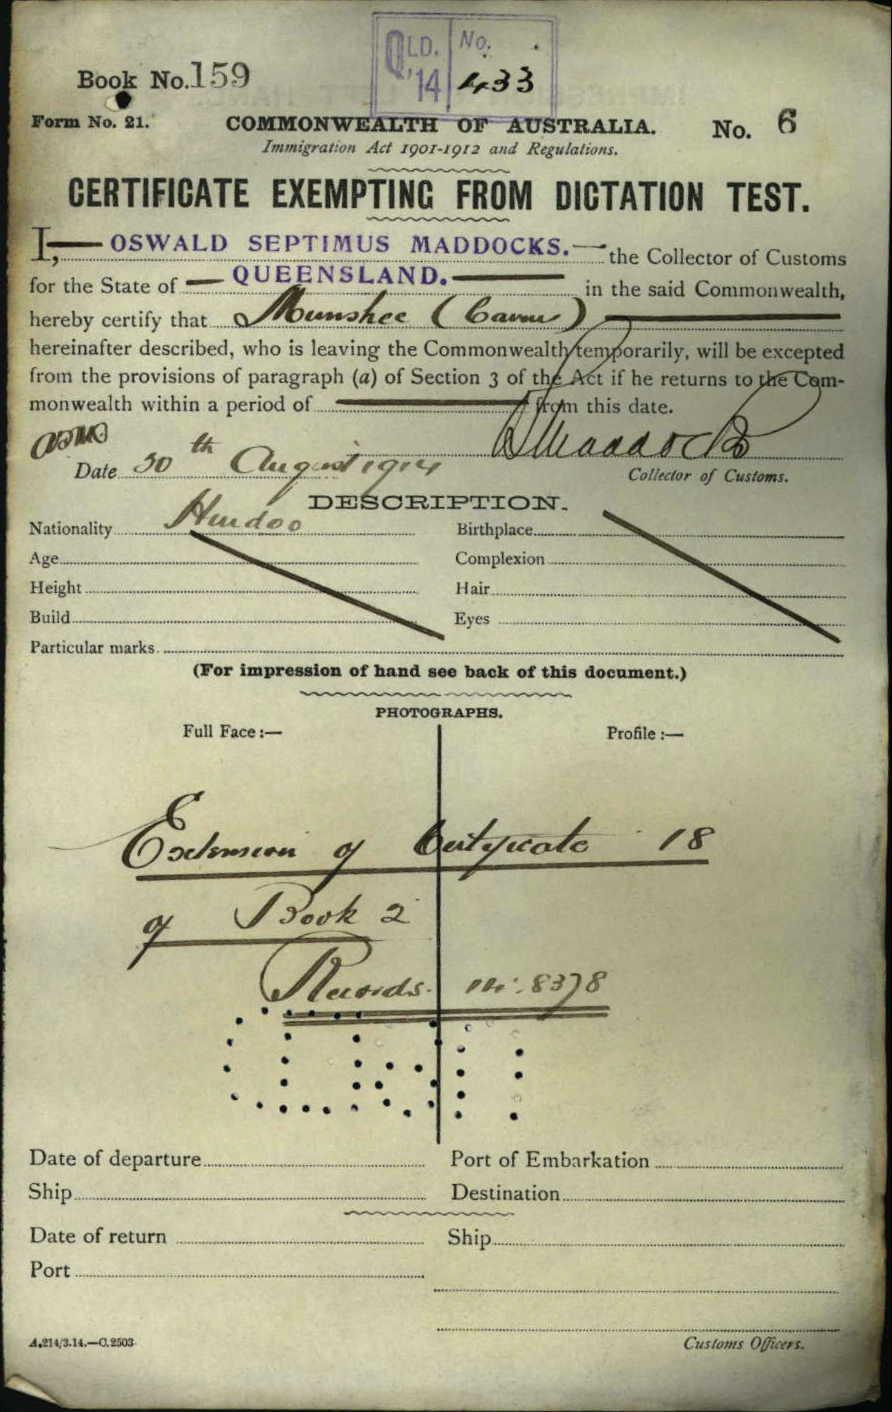 QLD. No.
'14 433
Book No. 159
Form No. 21.
COMMONWEALTH OF AUSTRALIA.
No. 6
Immigration Act 1901-1912 and Regulations.
CERTIFICATE EXEMPTING FROM DICTATION TEST.
I, OSWALD SEPTIMUS MADDOCKS. the Collector of Customs
for the State of QUEENSLAND. in the said Commonwealth,
hereby certify that Munshee
hereinafter described, who is leaving the Commonwealth temporarily, will be excepted
from the provisions of paragraph (a) of Section 3 of the Act if he returns to the Com-
monwealth within a period of from this date.
Maddocks
Date 30th August 1914
Collector of Customs.
DESCRIPTION.
Nationality Hindoo Birthplace
Age Complexion
Height Hair
Build Eyes
Particular marks
(For impression of hand see back of this document.)
PHOTOGRAPHS.
Full Face :— Profile :—
Extension of Certificate 18
of Book 2
Records 14. 8378
Date of departure Port of Embarkation
Ship Destination
Date of return Ship
Port
A.214/3.14.—C.2503
Customs Officers.